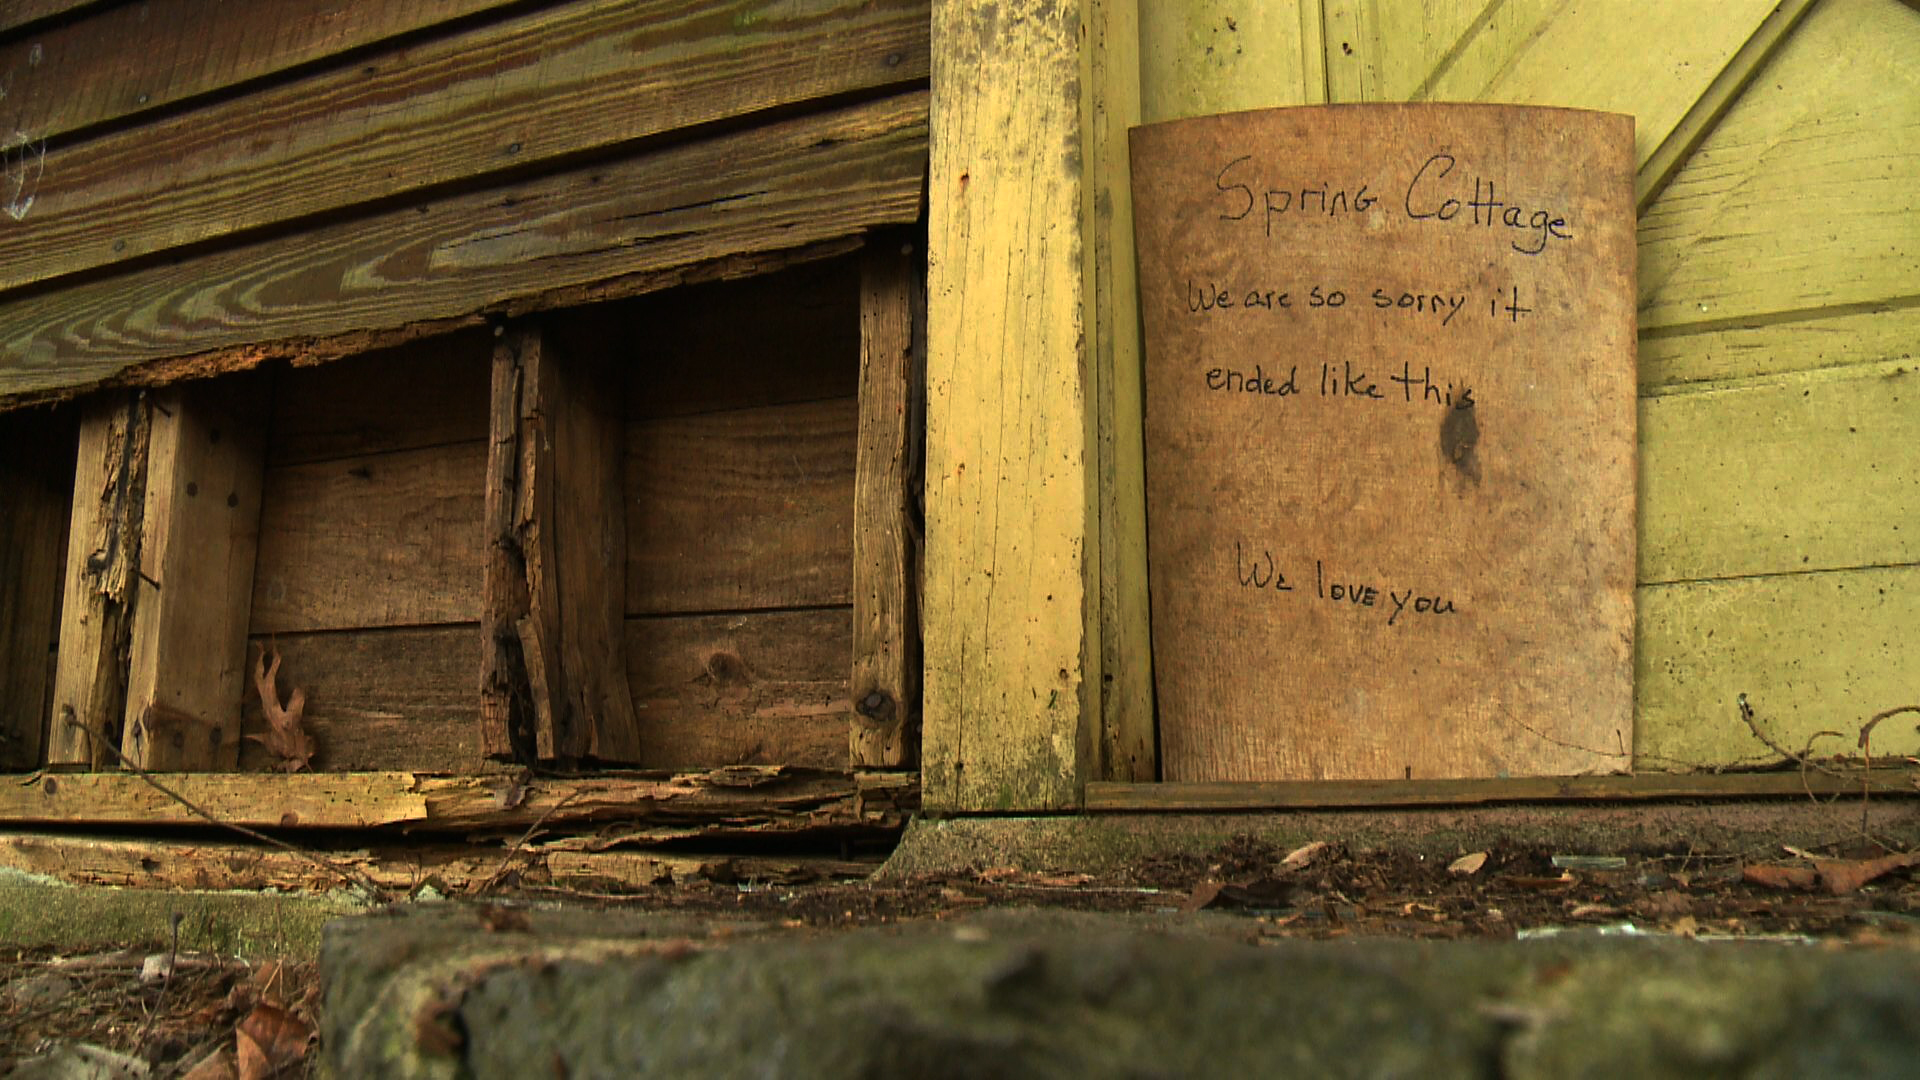 Spring Cottage
We are so sorry it
ended like this
We love you